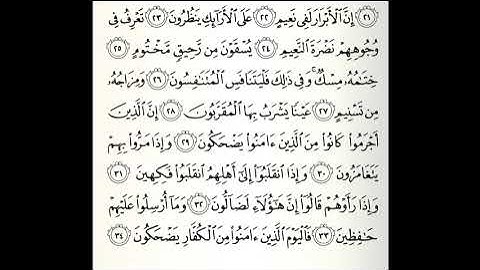 ﴿٢١﴾ إِنَّ ٱلْأَبْرَارَ لَفِى نَعِيمٍ ﴿٢٢﴾ عَلَى ٱلْأَرَآئِكِ يَنظُرُونَ ﴿٢٣﴾ تَعْرِفُ فِى
وُجُوهِهِمْ نَضْرَةَ ٱلنَّعِيمِ ﴿٢٤﴾ يُسْقَوْنَ مِن رَّحِيقٍ مَّخْتُومٍ ﴿٢٥﴾
خِتَـٰمُهُۥ مِسْكٌ ۚ وَفِى ذَٰلِكَ فَلْيَتَنَافَسِ ٱلْمُتَنَـٰفِسُونَ ﴿٢٦﴾ وَمِزَاجُهُۥ
مِن تَسْنِيمٍ ﴿٢٧﴾ عَيْنًا يَشْرَبُ بِهَا ٱلْمُقَرَّبُونَ ﴿٢٨﴾ إِنَّ ٱلَّذِينَ
أَجْرَمُوا۟ كَانُوا۟ مِنَ ٱلَّذِينَ ءَامَنُوا۟ يَضْحَكُونَ ﴿٢٩﴾ وَإِذَا مَرُّوا۟ بِهِمْ
يَتَغَامَزُونَ ﴿٣٠﴾ وَإِذَا ٱنقَلَبُوٓا۟ إِلَىٰٓ أَهْلِهِمُ ٱنقَلَبُوا۟ فَكِهِينَ ﴿٣١﴾
وَإِذَا رَأَوْهُمْ قَالُوٓا۟ إِنَّ هَـٰٓؤُلَآءِ لَضَآلُّونَ ﴿٣٢﴾ وَمَآ أُرْسِلُوا۟ عَلَيْهِمْ
حَـٰفِظِينَ ﴿٣٣﴾ فَٱلْيَوْمَ ٱلَّذِينَ ءَامَنُوا۟ مِنَ ٱلْكُفَّارِ يَضْحَكُونَ ﴿٣٤﴾